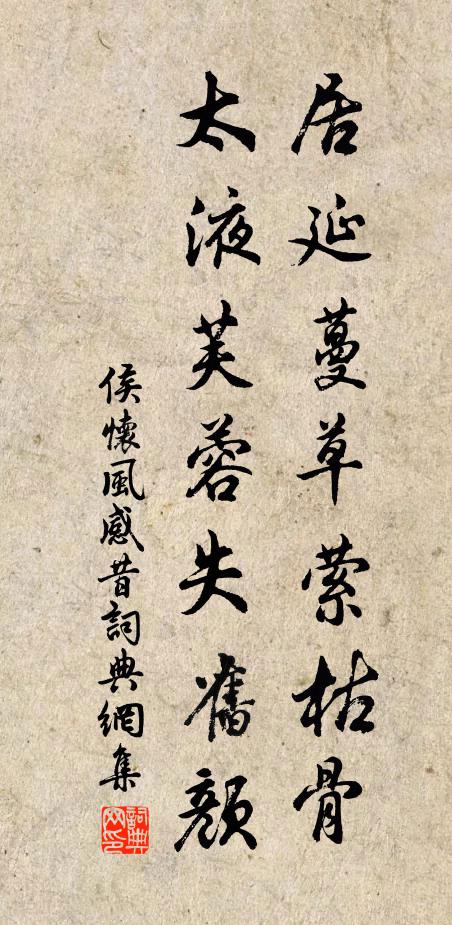 居延蔓草萦枯骨
太液芙蓉失舊顔
侯懷風感昔詞典網集
詞典网印